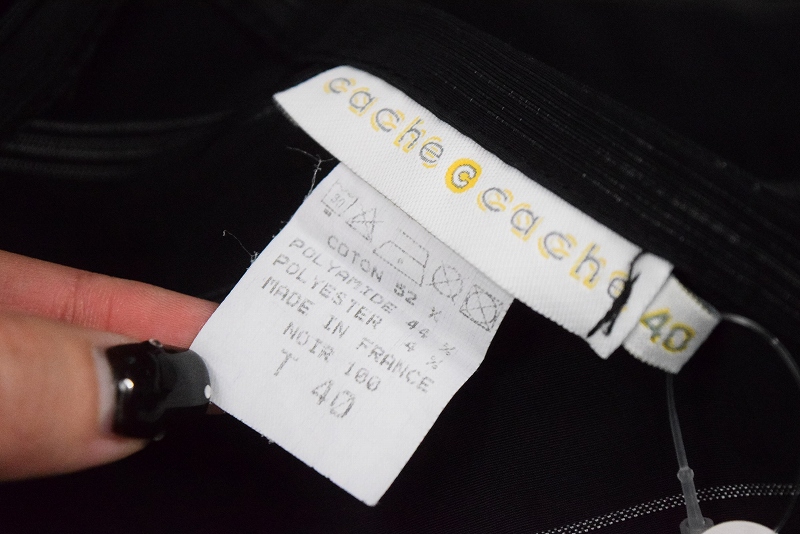 cache c cache
40
30
COTON 52 %
POLYAMIDE 44 %
POLYESTER 4 %
MADE IN FRANCE
NOIR 100
T 40